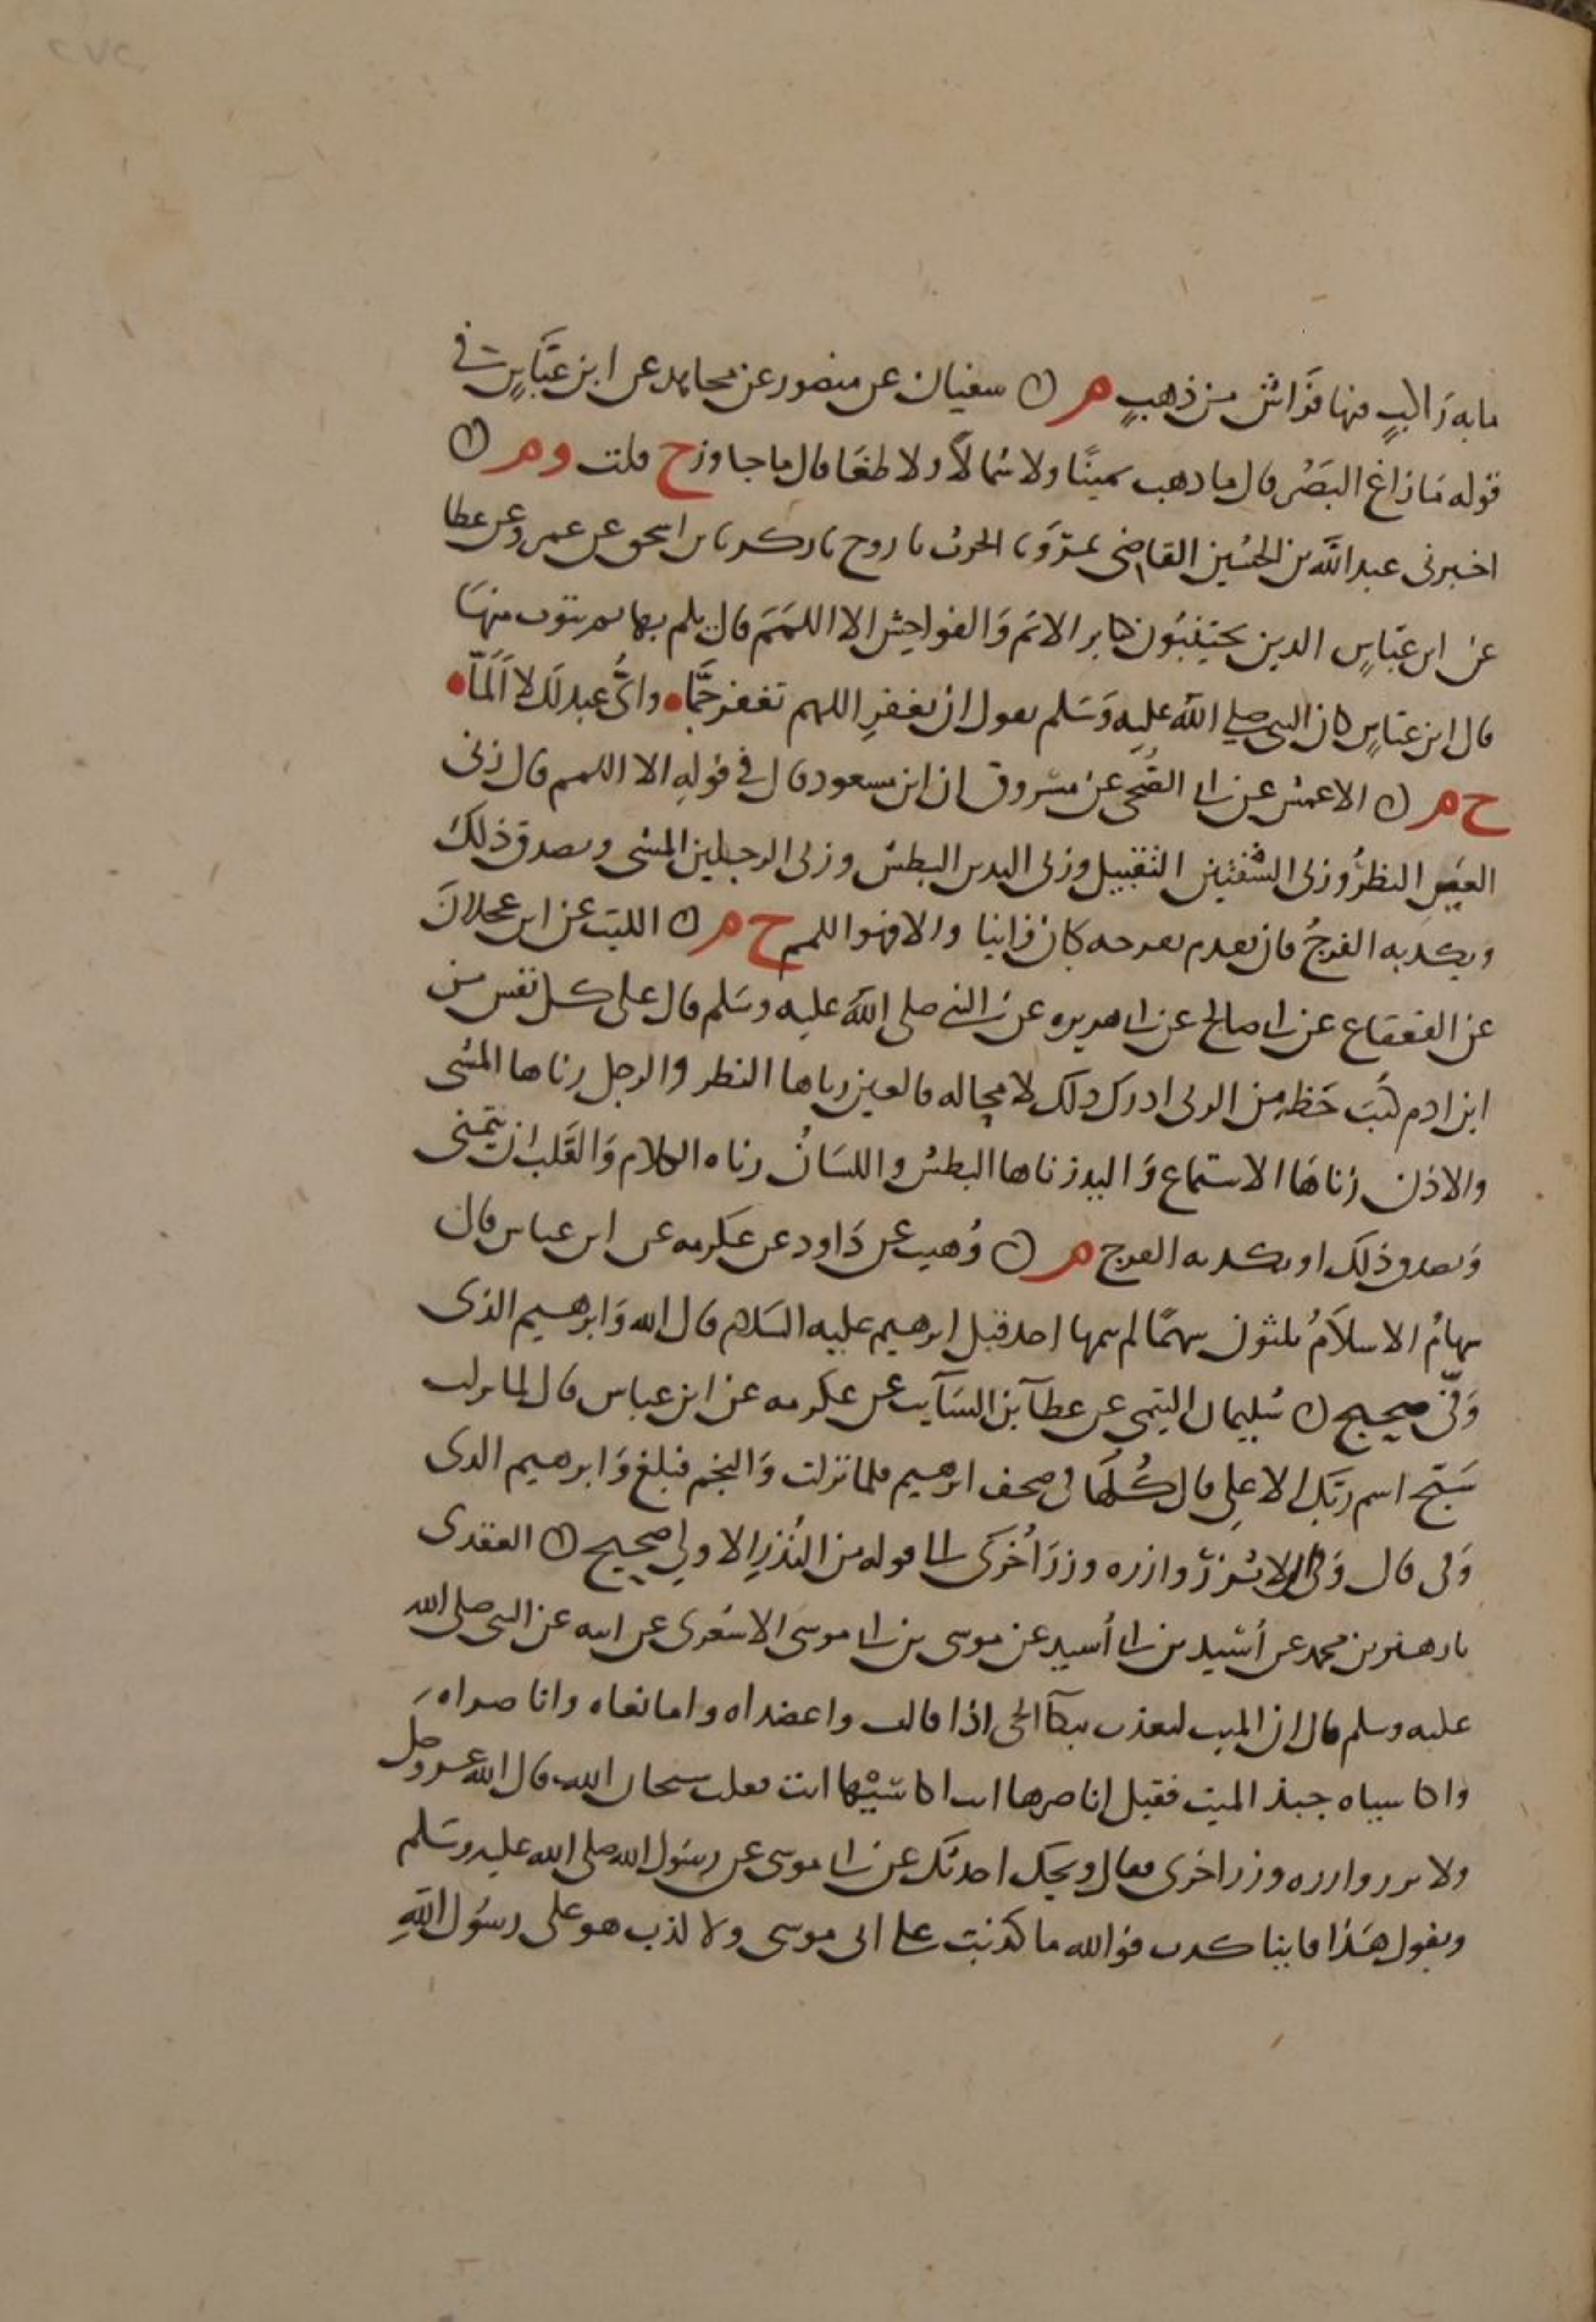 مايه راكب منها فراش من ذهب م ن سفيان عن منصور عن مجاهد عن ابن عباس في
قوله ما زاغ البصر قال ما ذهب يمينا ولا شمالا ولا طغا قال ما جاوز ح قلت وم ن
اخبرني عبد الله بن الحسين القاضي بمرو نا الحرث نا روح نا زكريا بن اسحق عن عمرو عن عطا
عن ابن عباس الذين يجتنبون كباير الاثم والفواحش الا اللمم قال يلم بها ثم يتوب منها
قال ابن عباس كان النبي صلي الله عليه وسلم يقول ان تغفر اللهم تغفر جما واي عبد لك لا الما
ح م ن الاعمش عن ابي الضحى عن مسروق ان ابن مسعود قال في قوله الا اللمم قال زنى
العين النظر وزنى الشفتين التقبيل وزنى اليدين البطش وزنى الرجلين المشى ويصدق ذلك
ويكذبه الفرج فان تقدم بفرجه كان زانيا والا فهو اللمم ح م ن الليث عن ابن عجلان
عن القعقاع عن ابي صالح عن ابي هريره عن النبي صلى الله عليه وسلم قال على كل نفس من
ابن ادم كتب حظه من الزنى ادرك ذلك لا محاله فالعين زناها النظر والرجل زناها المشى
والاذن زناها الاستماع واليد زناها البطش واللسان زناه الكلام والقلب ان يتمنى
ويصدق ذلك او يكذبه الفرج م ن وهيب عن داود عن عكرمه عن ابن عباس قال
سهام الاسلام ثلثون سهما لم يتمها احد قبل ابرهيم عليه السلام قال الله وابرهيم الذى
وفى صحيح ن سليمان التيمي عن عطآ بن السآيب عن عكرمه عن ابن عباس قال لما نزلت
سبح اسم ربك الاعلى قال كلها في صحف ابرهيم فلما نزلت والنجم فبلغ وابرهيم الذى
وفى قال وفى الا تزر وازره وزر اخرى الى قوله من النذر الاولى صحيح ن العقدى
نا زهير بن محمد عن أسيد بن ابي أسيد عن موسى بن ابي موسى الاشعرى عن ابيه عن النبي صلى الله
عليه وسلم قال ان الميت ليعذب ببكآ الحي اذا قالت واعضداه وامانعاه واناصراه
واكاسياه جبذ الميت فقيل اناصرها انت اكاسيها انت فقلت سبحان الله قال الله عز وجل
ولا تزر وازره وزر اخرى فقال ويحك احدثك عن ابي موسى عن رسول الله صلى الله عليه وسلم
وتقول هذا فاينا كذب فوالله ما كذبت على ابى موسى ولا كذب هو على رسول الله